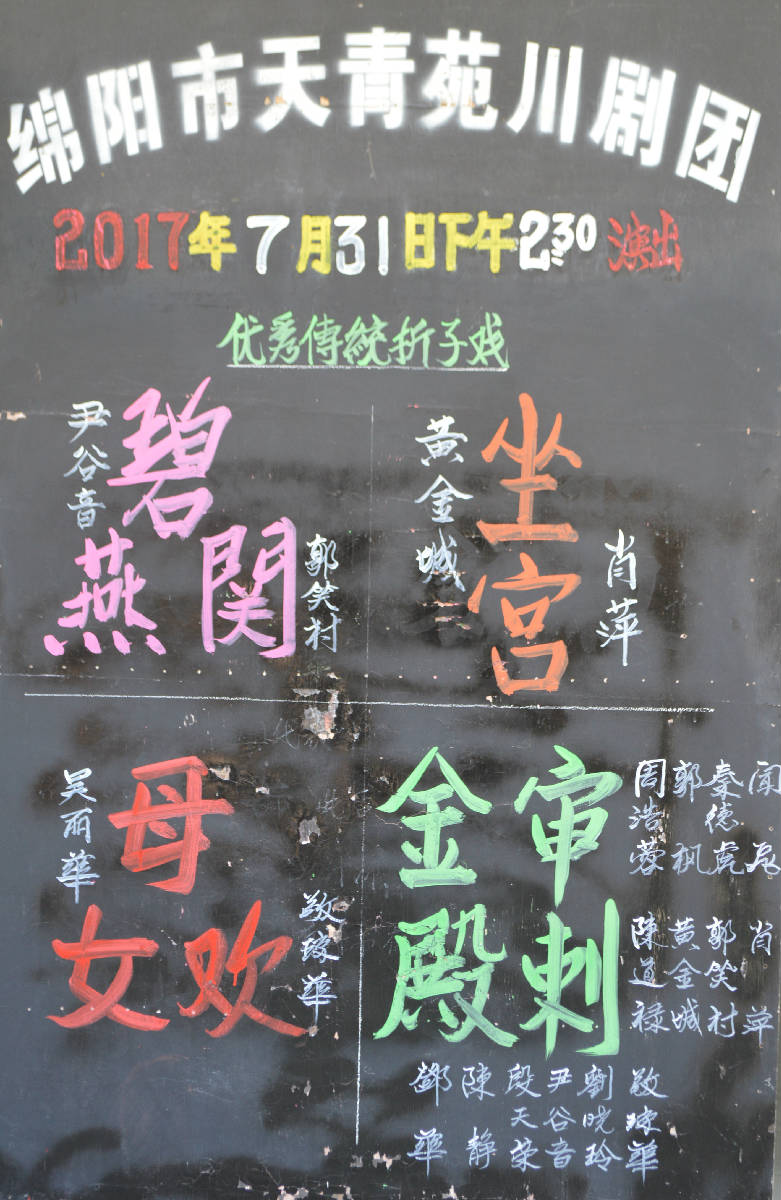 绵阳市天青苑川剧团
2017年7月31日下午2:30演出
优秀傳統折子戏
尹谷音
碧
燕関
郭笑村
黄金城
坐
宫
肖萍
吴丽華
母
女欢
敬瑗華
金審
殿刺
周浩蓉
郭枫
秦德虎
陳道禄
黄金城
郭笑村
肖萍
鄧華
陳静
段天荣
尹谷音
劉晓玲